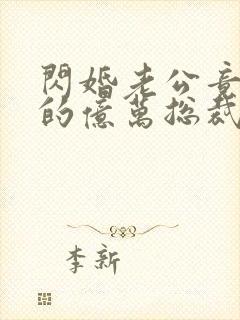 閃婚老公竟
的億萬總裁
李新